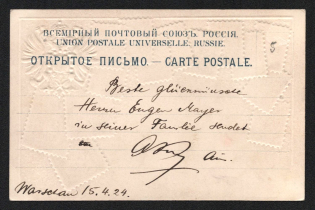 ВСЕМІРНЫЙ ПОЧТОВЫЙ СОЮЗЪ. РОССІЯ.
UNION POSTALE UNIVERSELLE. RUSSIE.
5
ОТКРЫТОЕ ПИСЬМО. — CARTE POSTALE.
Beste
Herrn Eugen Mayer
in seiner Familie sendet
Warschau 15.4.24.